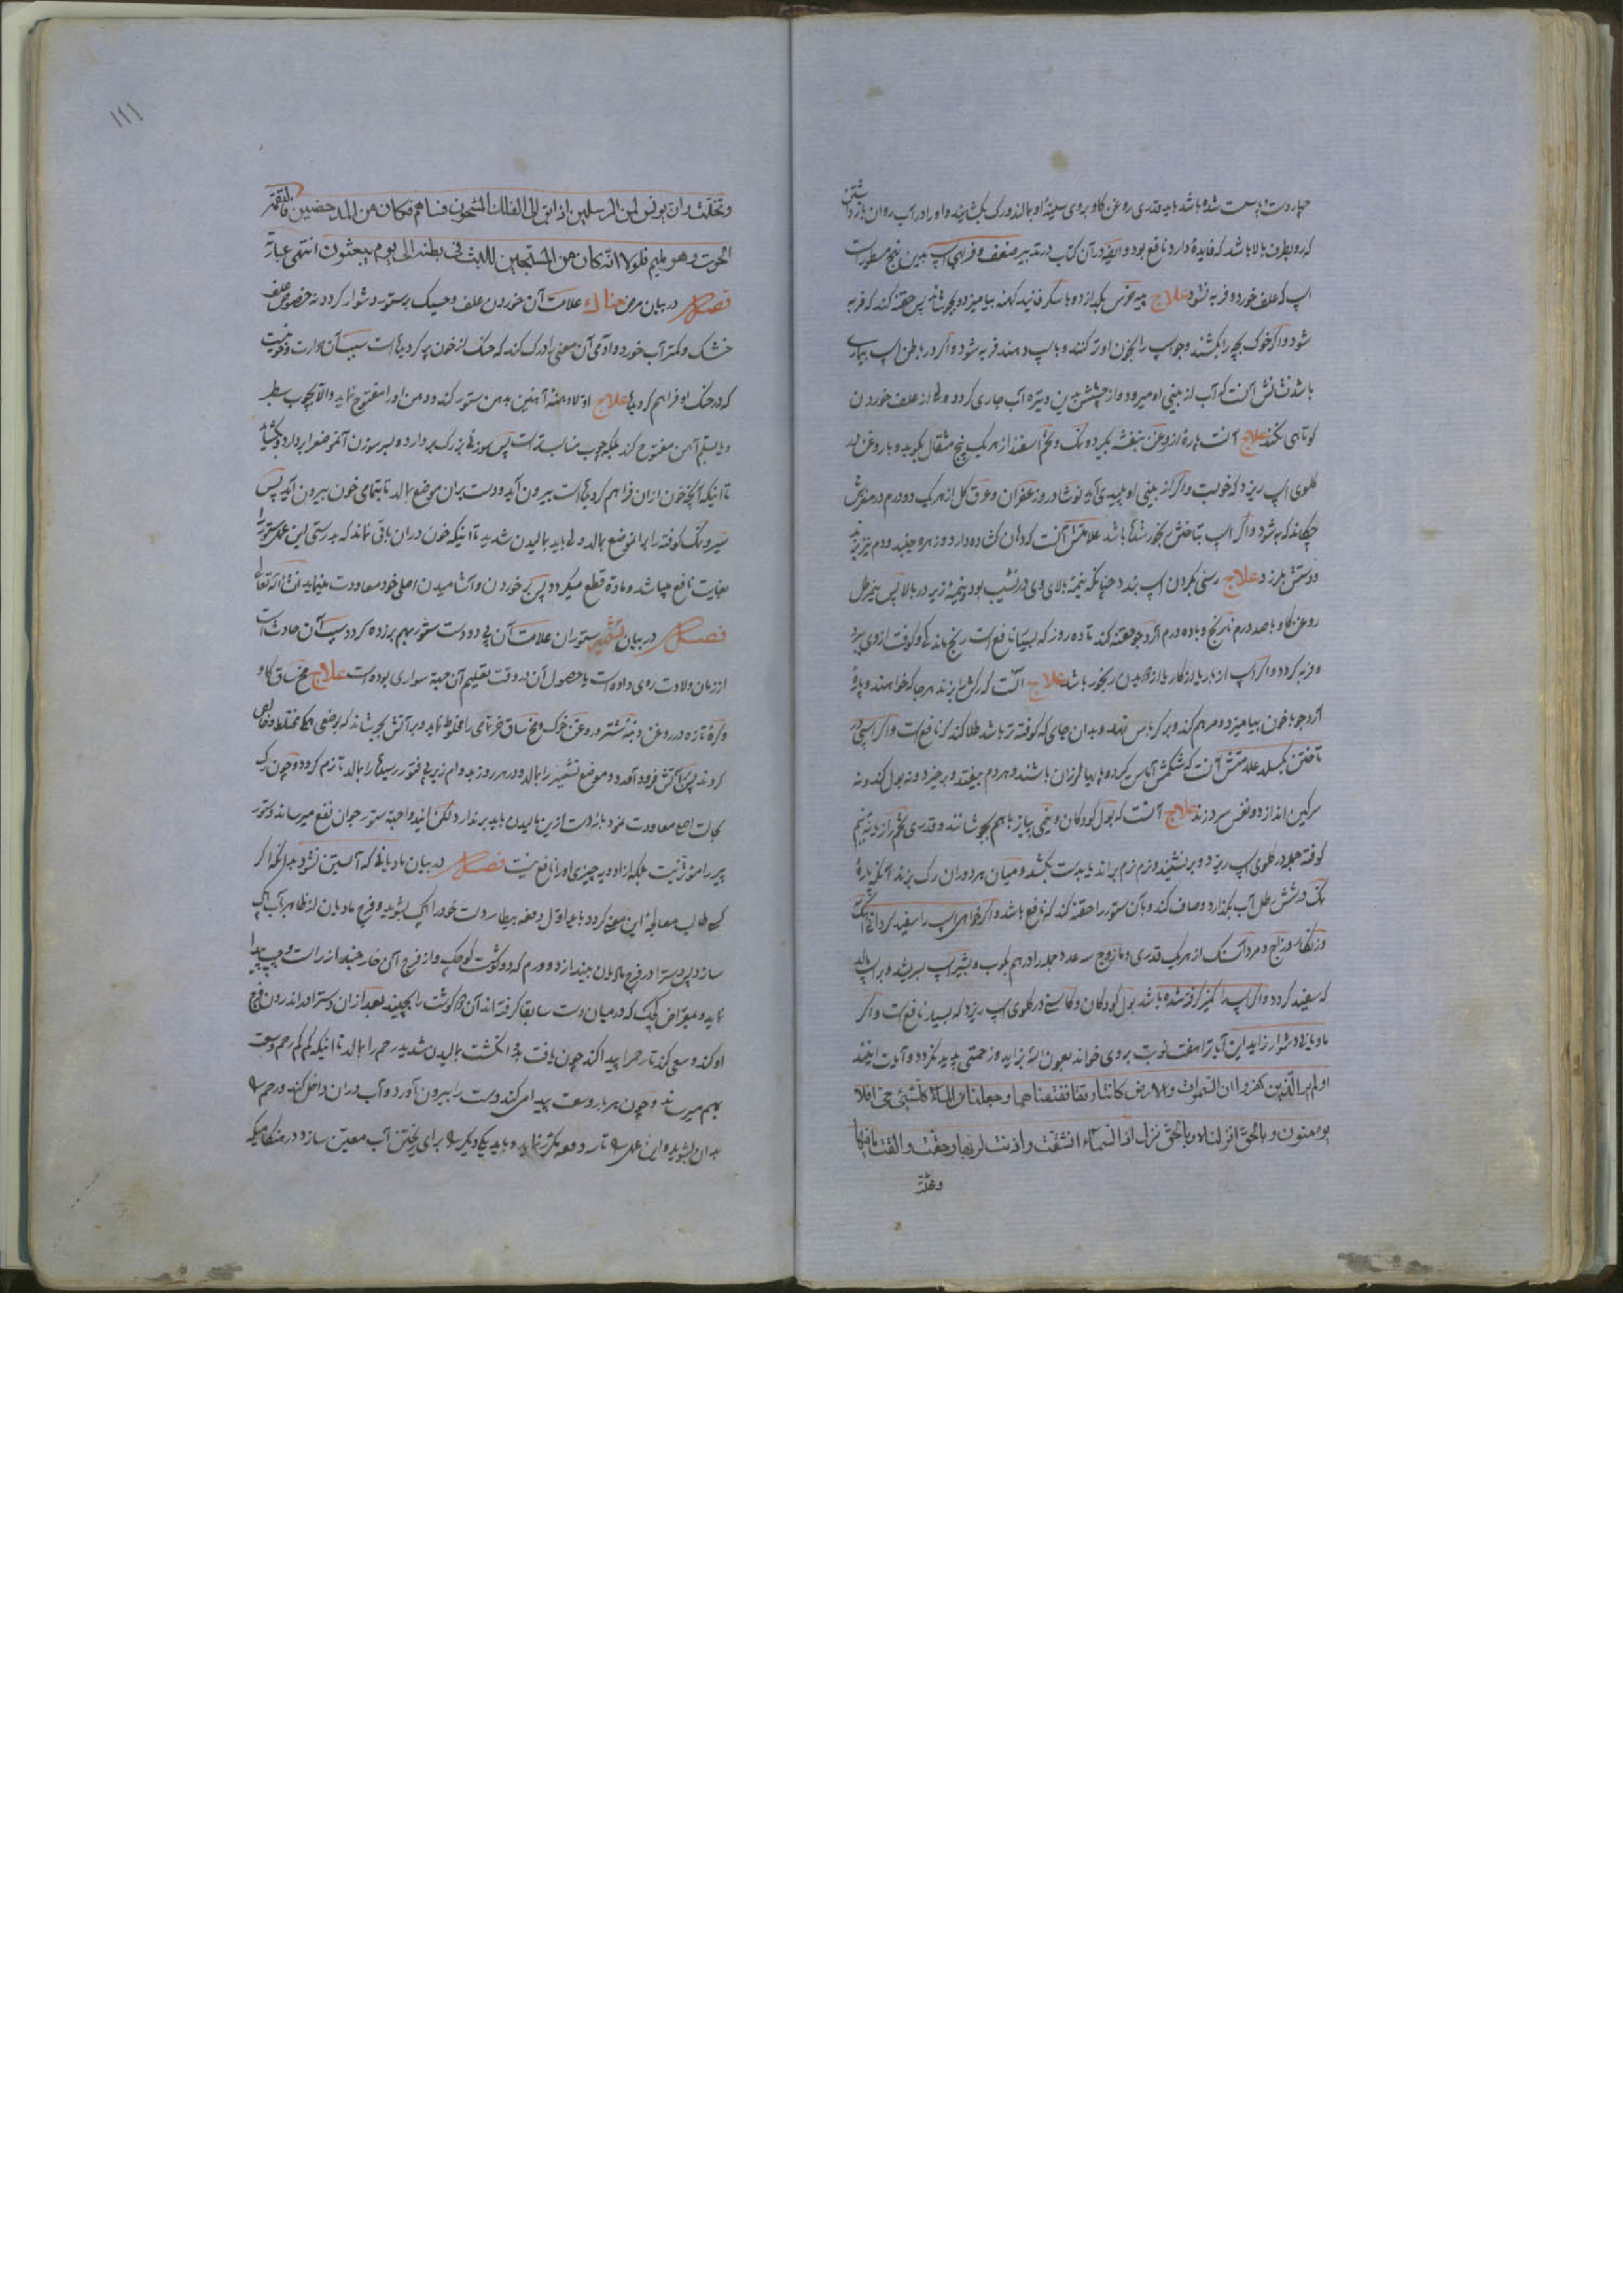 چهار دست و پا سست شده باشد باید قدری روغن گاو بر روی سینهٔ او بمالند و رک بکشایند و او را در آب روان بازداشتن
که رو بطرف بالا باشد که فایده دارد نافع بود و ایضا در آن کتاب در تدبیر ضعف و فربهی اسپ بدین نهج مسطور است
اسپ که علف خورد و فربه نشود علاج پیه خرس بگدازد و با شکر فانید کهنه بیامیزد و بجوشاند پس حقنه کند که فربه
شود و اگر خوک بچه را بکشند و جو اسپ را بخون او تر کنند و باسپ دهند فربه شود و اگر در باطن اسپ بیماری
باشد نشانش آنست که آب از بینی او میرود و از چشمش بدین وتیره آب جاری گردد ولی از علف خوردن
کوتاهی نکند علاج آنست پارهٔ از روغن بنفشه بگیرد و نمک و تخم اسفند از هر یک پنج مثقال بکوبد و با روغن در
گلوی اسپ ریزد که خوبست و اگر از بینی او پلیدی آید نوشادر و زعفران و عرق گل از هر یک دو درم در مغزش
چکاند که به شود و اگر اسپ بتاختن رنجور شده باشد علامتش آنست که دهان گشاده دارد و زهره جنبد و دم تیز تیز زند
و دستش بلرزد علاج رسنی بگردن اسپ بندد چنانکه نیمهٔ بالای وی در نشیب بود و نیمهٔ زیر در بالا پس پنج رطل
روغن گاو با صد درم نارنج و با ده درم آرد جو حقنه کند تا ده روز که بسیار نافع است رنج ماندگی و کوفت از وی ببرد
و فربه گردد و اگر اسپ از بار یا از کار یا از دویدن رنجور باشد علاج آنست که رگش را بزند هر جا که خواهند و پارهٔ
آرد جو با خون بیامیزد و مرهم کند و بر کرباس نهد و بدان جای که کوفته تر باشد طلا کند که نافع است و اگر اسپی در
تاختن بگسلد علامتش آنست که شکمش آماس کرده و پایها لرزان باشند و هر دم بیفتد و برخیزد و نه بول کند و نه
سرگین اندازد و نفس سرد زند علاج آنست که بول کودکان و تخم پیاز با هم بجوشانند و قدری تخم رازیانه نیم
کوفته جمله در گلوی اسپ ریزد و برنشیند و نرم نرم براند باید دست بکشد و میان هر دو ران رگ بزند آنگه پارهٔ
نمک در شش رطل آب بگدازد و صاف کند و بآن ستور را حقنه کند که نافع باشد و اگر خواهی اسپ را سفید گردانی آهک
و زنگار و زاج و مردآسنگ از هر یک قدری و مازوج سه عدد جمله را در هم بکوب و بشیر اسپ بسریشد و بر اسپ مالد
که سفید گردد و اگر اسپ را کمیز گرفته شده باشد بول کودکان و کاسنی در گلوی اسپ ریزد که بسیار نافع است و اگر
مادیانی دشوار زاید این آیات را هفت نوبت بر وی خواند بعون الله بزاید و زحمتی پدید نگردد و آیات اینند
اولم یر الذین کفروا ان السموات والارض کانتا رتقا ففتقناهما وجعلنا من الماء کل شیئ حی افلا
یؤمنون و بالحق انزلناه و بالحق نزل اذا السماء انشقت واذنت لربها وحقت والقت ما فیها
وتخلت
۱۲۱
وتخلت وان یونس لمن المرسلین اذ ابق الی الفلک المشحون فساهم فکان من المدحضین فالتقمه
الحوت وهو ملیم فلولا انه کان من المسبحین للبث فی بطنه الی یوم یبعثون انتهی عبارته
فصل در بیان مرض حناک علامت آن خوردن علف و حسیک بر ستور دشوار گردد نه خصوص علف
خشک و کمتر آب خورد و آدمی آن معنی را درک کند که حنک از خون پر گردیده است سبب آن حرارت و خونیست
که در حنک او فراهم گردیده علاج اولا دهنهٔ آهنین بدهن ستور کند و دهن او را مفتوح نماید والا بچوب سطبر
و یا بقلم آهن مفتوح کند بلکه چوب مناسبتر است پس سوزنی بزرگ بردارد و بسر سوزن آنموضع را بردارد و بگشاید
تا اینکه آنچه خون از آن فراهم گردیده است بیرون آید و دست بران موضع بمالد تا بتمامی خون بیرون آید پس
سیر و نمک کوفته را بران موضع بمالد ولی باید بمالیدن شدید تا اینکه خون در آن باقی نماند که بدرستی این عمل ستور را
بغایت نافع میباشد و ماده قطع میگردد پس بر خوردن و آشامیدن اصلی خود معاودت مینماید انشاء الله تعالی
فصل در بیان ستوران علامت آن پی دو دست ستور بهم بر زده گردد سبب آن حادث است
از زمان ولادت روی داده است یا حصول آن در وقت تعلیم آن جهة سواری بوده است علاج مخ ساق گاو
و کرهٔ تازه و روغن دنبهٔ شتر و روغن خوک و مخ ساق خر تمامی را مخلوط نماید و بر آتش بجوشاند که بوضعی همگی مختلط و خالص
گردند پس از آتش فرود آمده و موضع تشمیر را بمالد و در هر روز بدوام زیر پی فتور رسیده را بمالد تا نرم گردد و چون رگ
بحالت اصل معاودت نمود باید دست از این مالیدن باید بردارد لکن اینها جهة ستور جوان نفع میرساند و ستور
پیر را مؤثر نیست بلکه از ادویه چیزی او را نافع نیست فصل در بیان مادیانی که آبستن نشود بدانکه اگر
کسی طالب معالجهٔ این معنی گردد باید اول دفعه بیطار دست خود را بشوید و فرج مادیان از ظاهر آب پاک
سازد پس دست را در فرج مادیان بیندازد و ورم که دو گوشت کوچک و از فرج آن خارجند از راست و چپ پیدا
نماید و بمقراض کوچک که در میان دست سابقا گرفته اند آن دو گوشت را بچیند بعد از آن دست را در اندرون فرج
او کند و سعی کند تا رحم را پیدا کند چون یافت بدو انگشت بمالیدن شدید رحم را بمالد تا اینکه کم کم رحم وسعت
بهم میرساند و چون هر بار وسعت پیدا میکند دست را بیرون آورد و آب در آن داخل کند و رحم را
بدان بشوید و این عمل را تا سه دفعه مکرر نماید و باید یکی دیگر را برای ریختن آب معین سازد در هنگامیکه